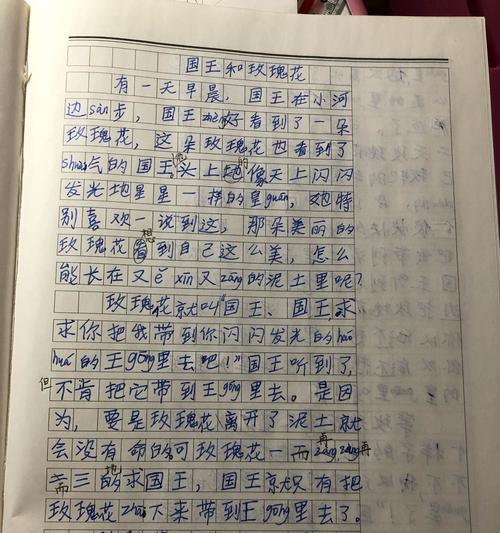 国王和玫瑰花
有一天早晨，国王在小河
边sàn步，国王zhèng好看到了一朵
玫瑰花，这朵玫瑰花也看到了
shuài气的国王，他头上的像天上闪闪
发光地星星一样的皇guān，她特
别喜欢一说到这，那朵美丽的
玫瑰花想到自己这么美，怎么
能长在又ě xīn又zāng的泥土里呢？
玫瑰花京尤叫“国王、国王，求
求你把我带到你闪闪发光的háo
huá的王gōng里去吧！”国王听到了，
但不肯把它带到王gōng里去。是因
为，要是玫瑰花离开了泥土就
会没有命的可玫瑰花一而再，再
而三地求国王，国王京尤只有把
玫瑰花zhāi下来带到王gōng里去了。